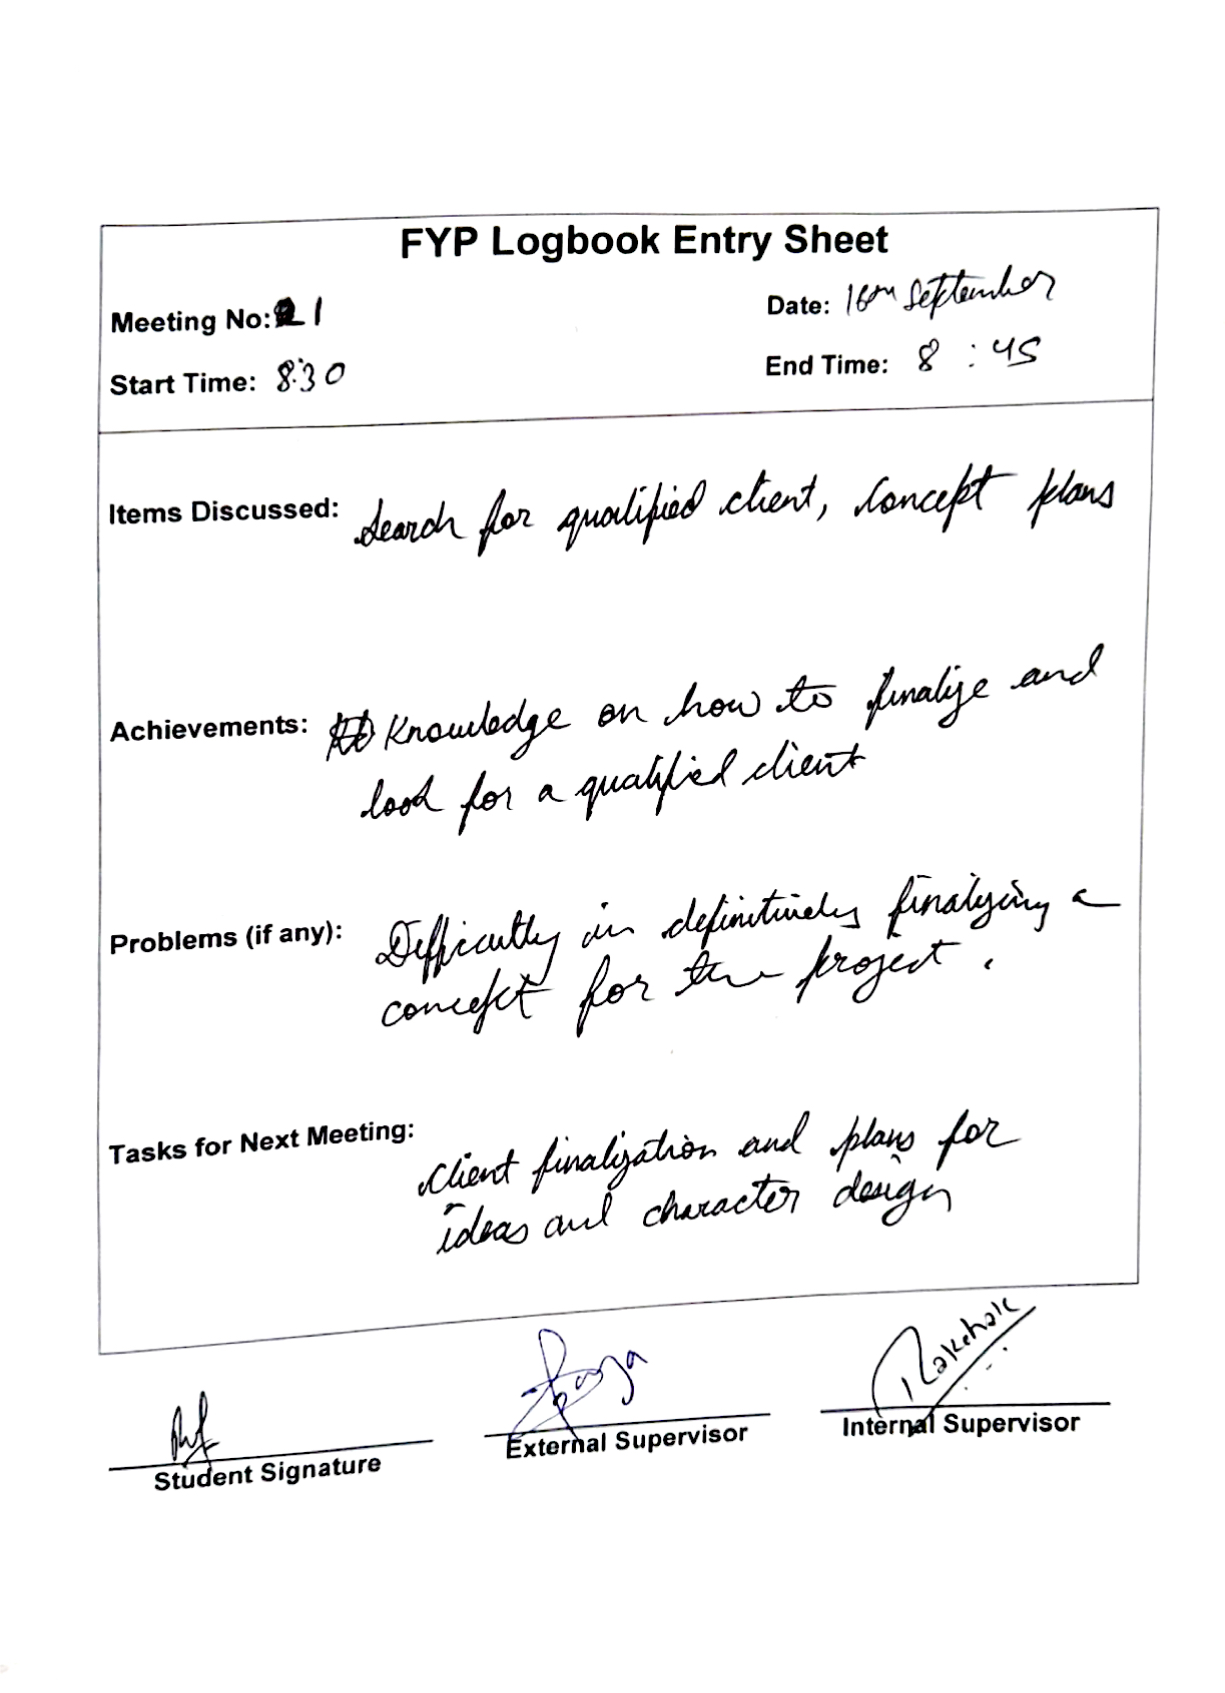 FYP Logbook Entry Sheet
Meeting No: 1
Date: 16th September
Start Time: 8:30
End Time: 8:45
Items Discussed: Search for qualified client, Concept plans
Achievements: Knowledge on how to finalize and
look for a qualified client
Problems (if any): Difficulty in definitively finalizing a
concept for the project.
Tasks for Next Meeting:
Client finalization and plans for
ideas and character design
Student Signature
External Supervisor
Internal Supervisor